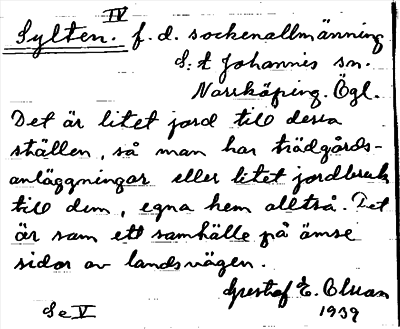 IV
Sylten. f. d. sockenallmänning
S:t Johannis sn.
Norrköping. Ögl.
Det är litet jord till dessa
ställen, så man har trädgårds-
anläggningar eller litet jordbruk
till dem, egna hem alltså. Det
är som ett samhälle på ömse
sidor av landsvägen.
Gustaf E. Olsson
Se V 1939